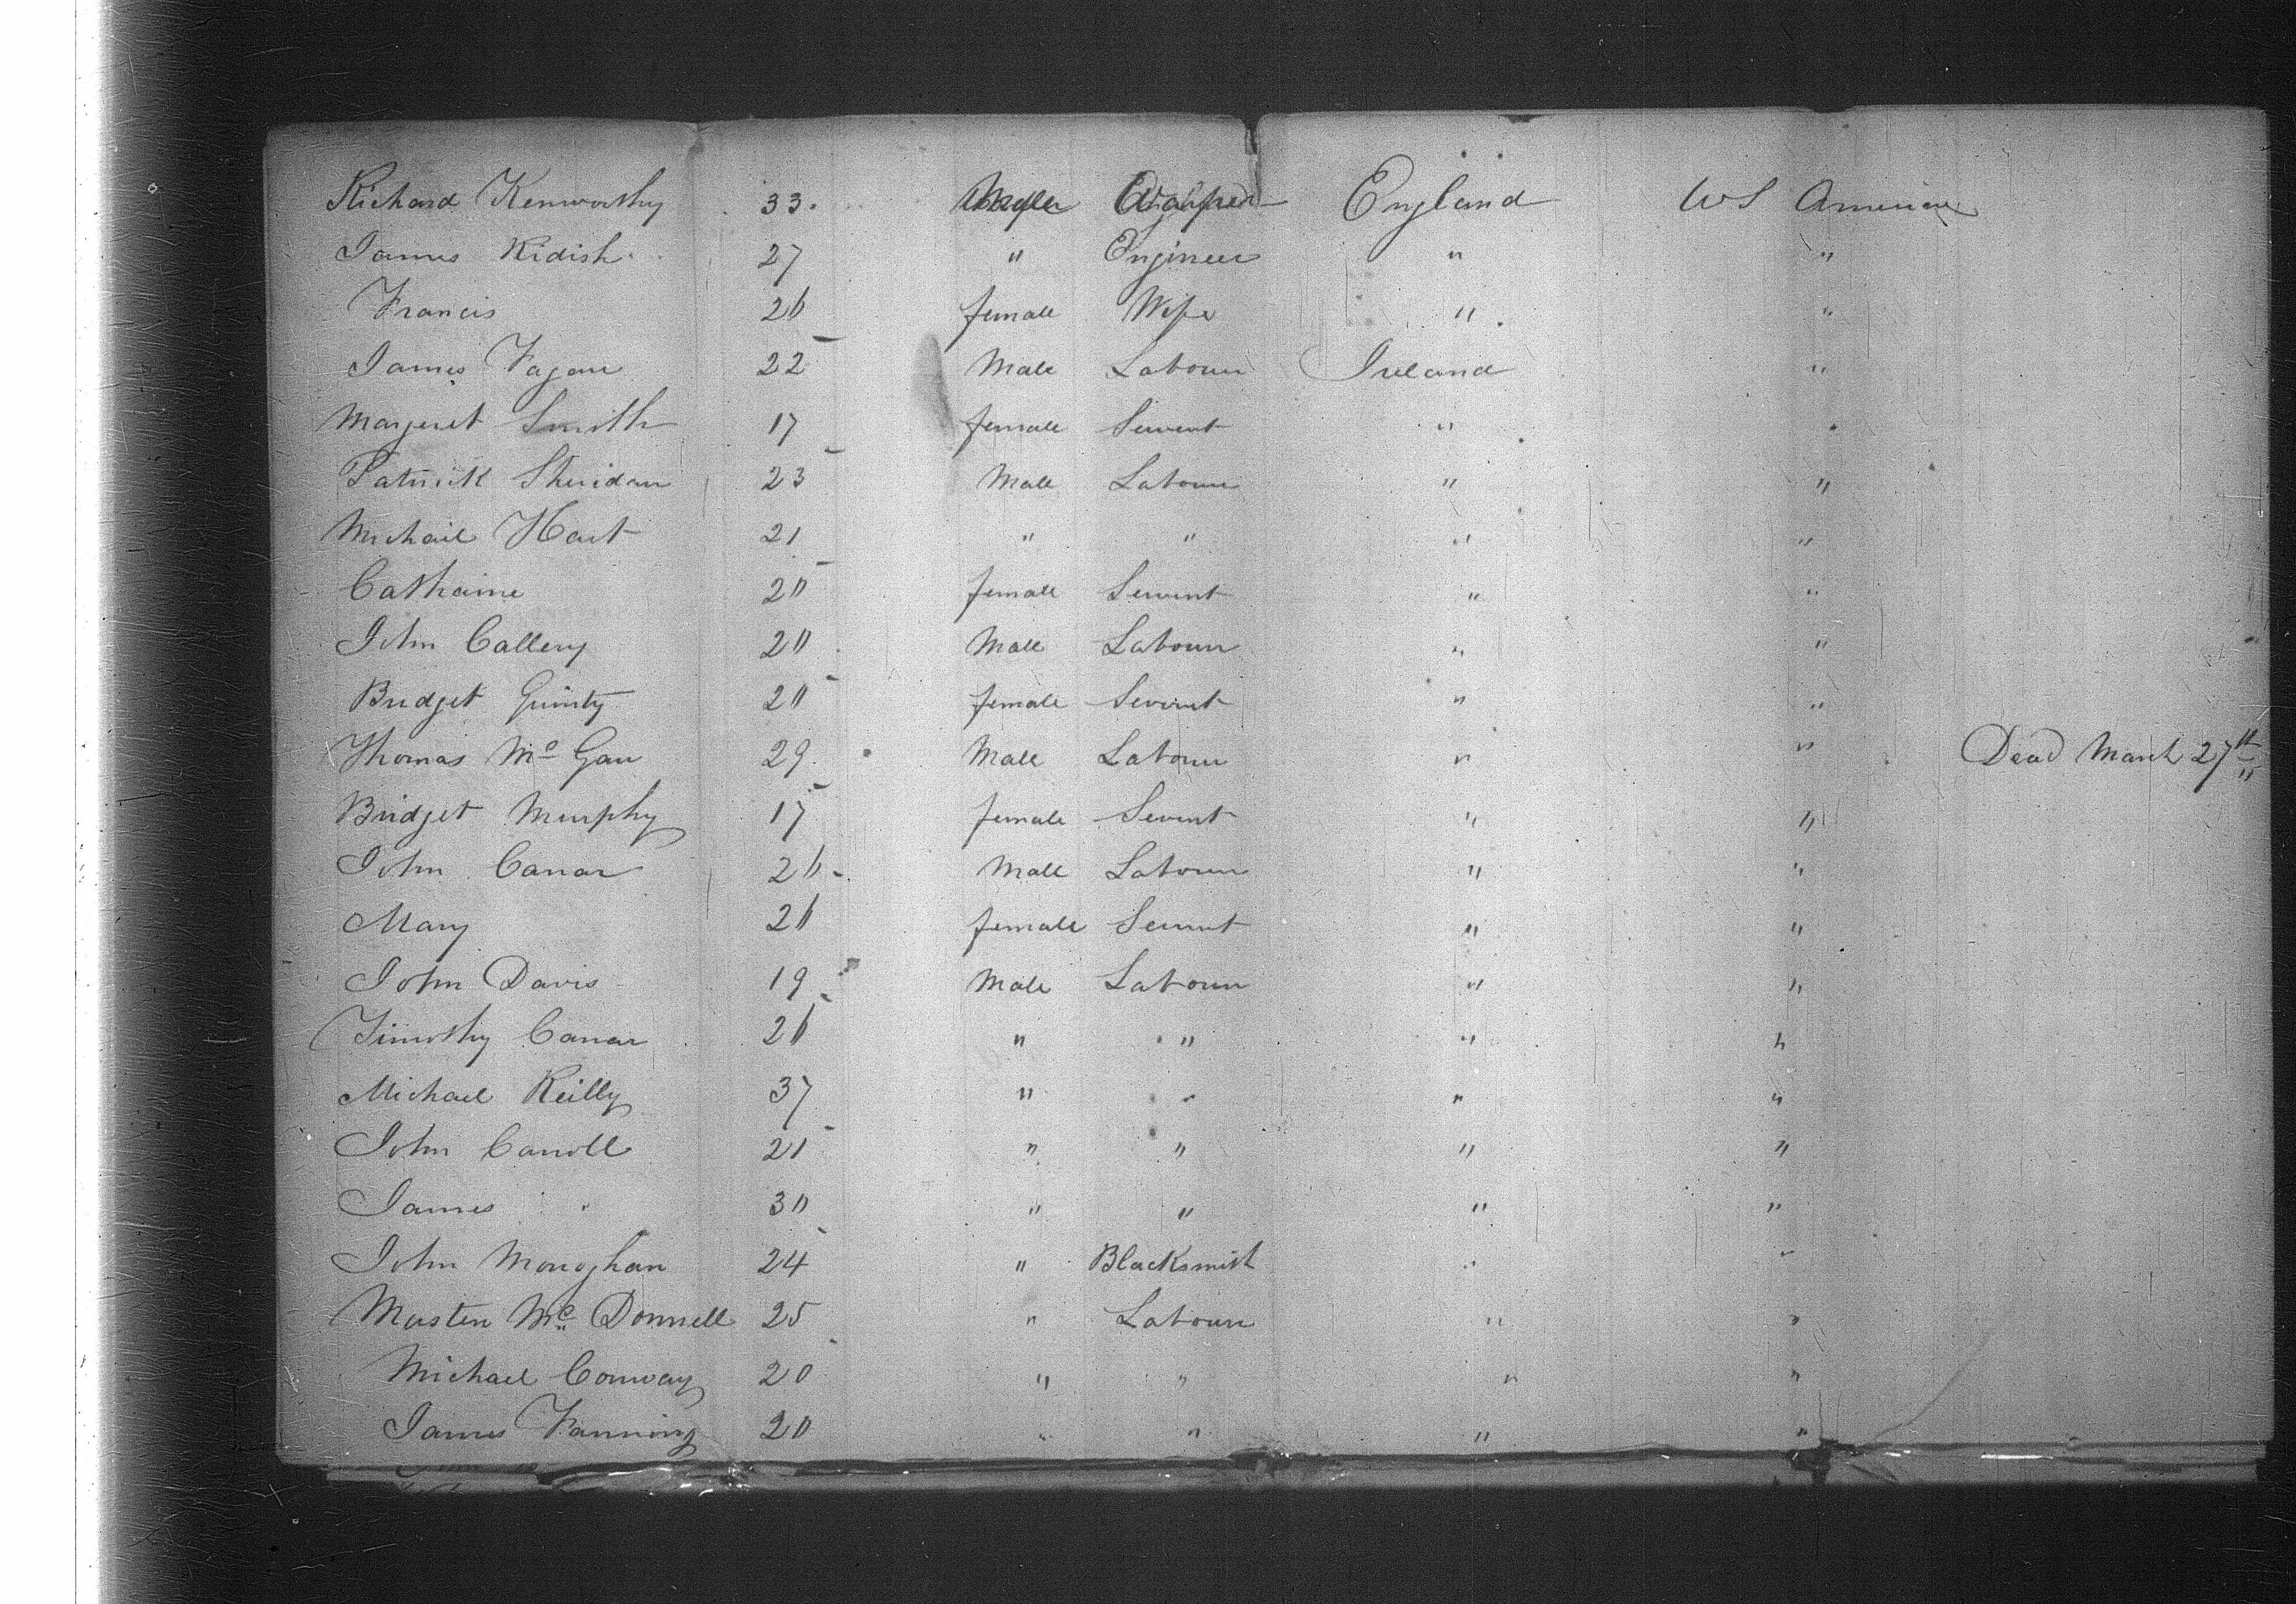 Richard Kenworthy 33. Male England US America
James Kidish 27 " Engineer " "
Francis 26 female Wife " "
James Fagan 22 Male Labour Ireland "
Margeret Smith 17 female Servent " "
Patrick Sheridan 23 Male Labour " "
Michail Hart 21 " " " "
Cathaine 20 female Servent " "
John Callery 20 Male Labour " "
Bridget Guinty 20 female Servent " "
Thomas Mc Gau 29. Male Labour " " Dead March 27th
Bridget Murphy 17 female Servent " " "
John Canar 26 Male Labour " "
Mary 26 female Servent " "
John Davis 19 Male Labour " "
Timothy Canar 26 " " " "
Michael Reilly 37 " " " "
John Carroll 21 " " " "
James " 30 " " " "
John Monoghan 24 " Blacksmith " "
Masten Mc Donnell 25 " Labour " "
Michael Conway 20 " " " "
James Fanning 20 " " " "